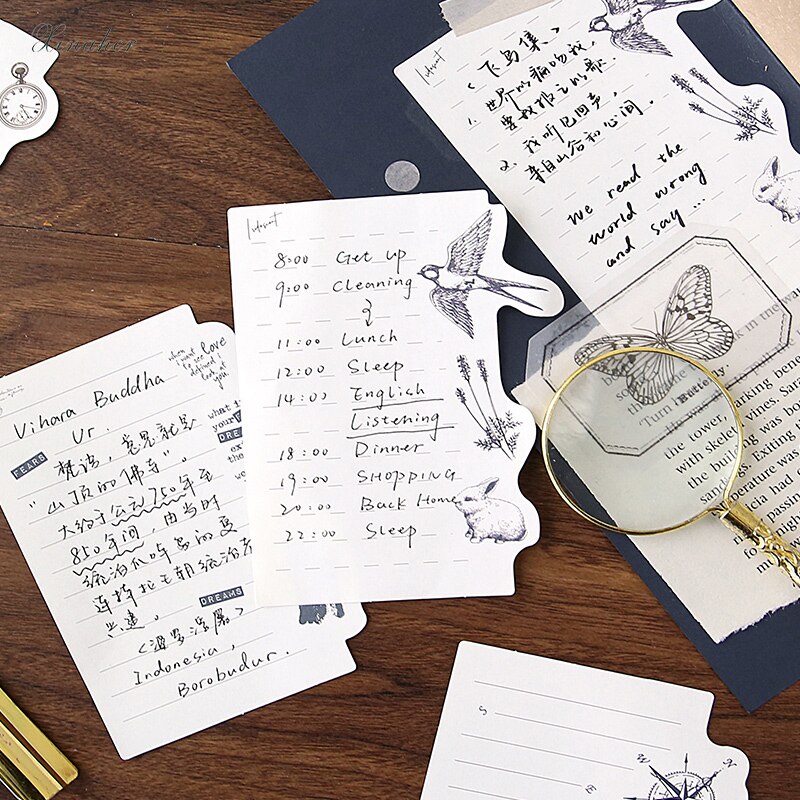 Xinaher
8:00 Get up
9:00 Cleaning
11:00 Lunch
12:00 Sleep
14:00 English
Listening
18:00 Dinner
19:00 SHOPPING
20:00 Back Home
22:00 Sleep
Vihara Buddha
Ur.
梵语，意思就是
“山顶的佛寺”。
大约于公元750年至
850年间，由当时
统治爪哇岛的夏
连特拉王朝统治者
兴建。
《婆罗浮屠》
Indonesia,
Borobudur.
FEARS
DREAMS
when
i want
to see love
defined i
look at
you
what i
your
DRE
ex
the
《飞鸟集》
1. 世界以痛吻我，
要我报之以歌.
2. 我听见回声，
来自山谷和心间.
we read the
world wrong
and say...
Butterfly
in the wa
book in the
"Turn
working bene
with skele
vines. Sara
the building was
Exiting the
perature was
had for some
passing
night
S
N
E